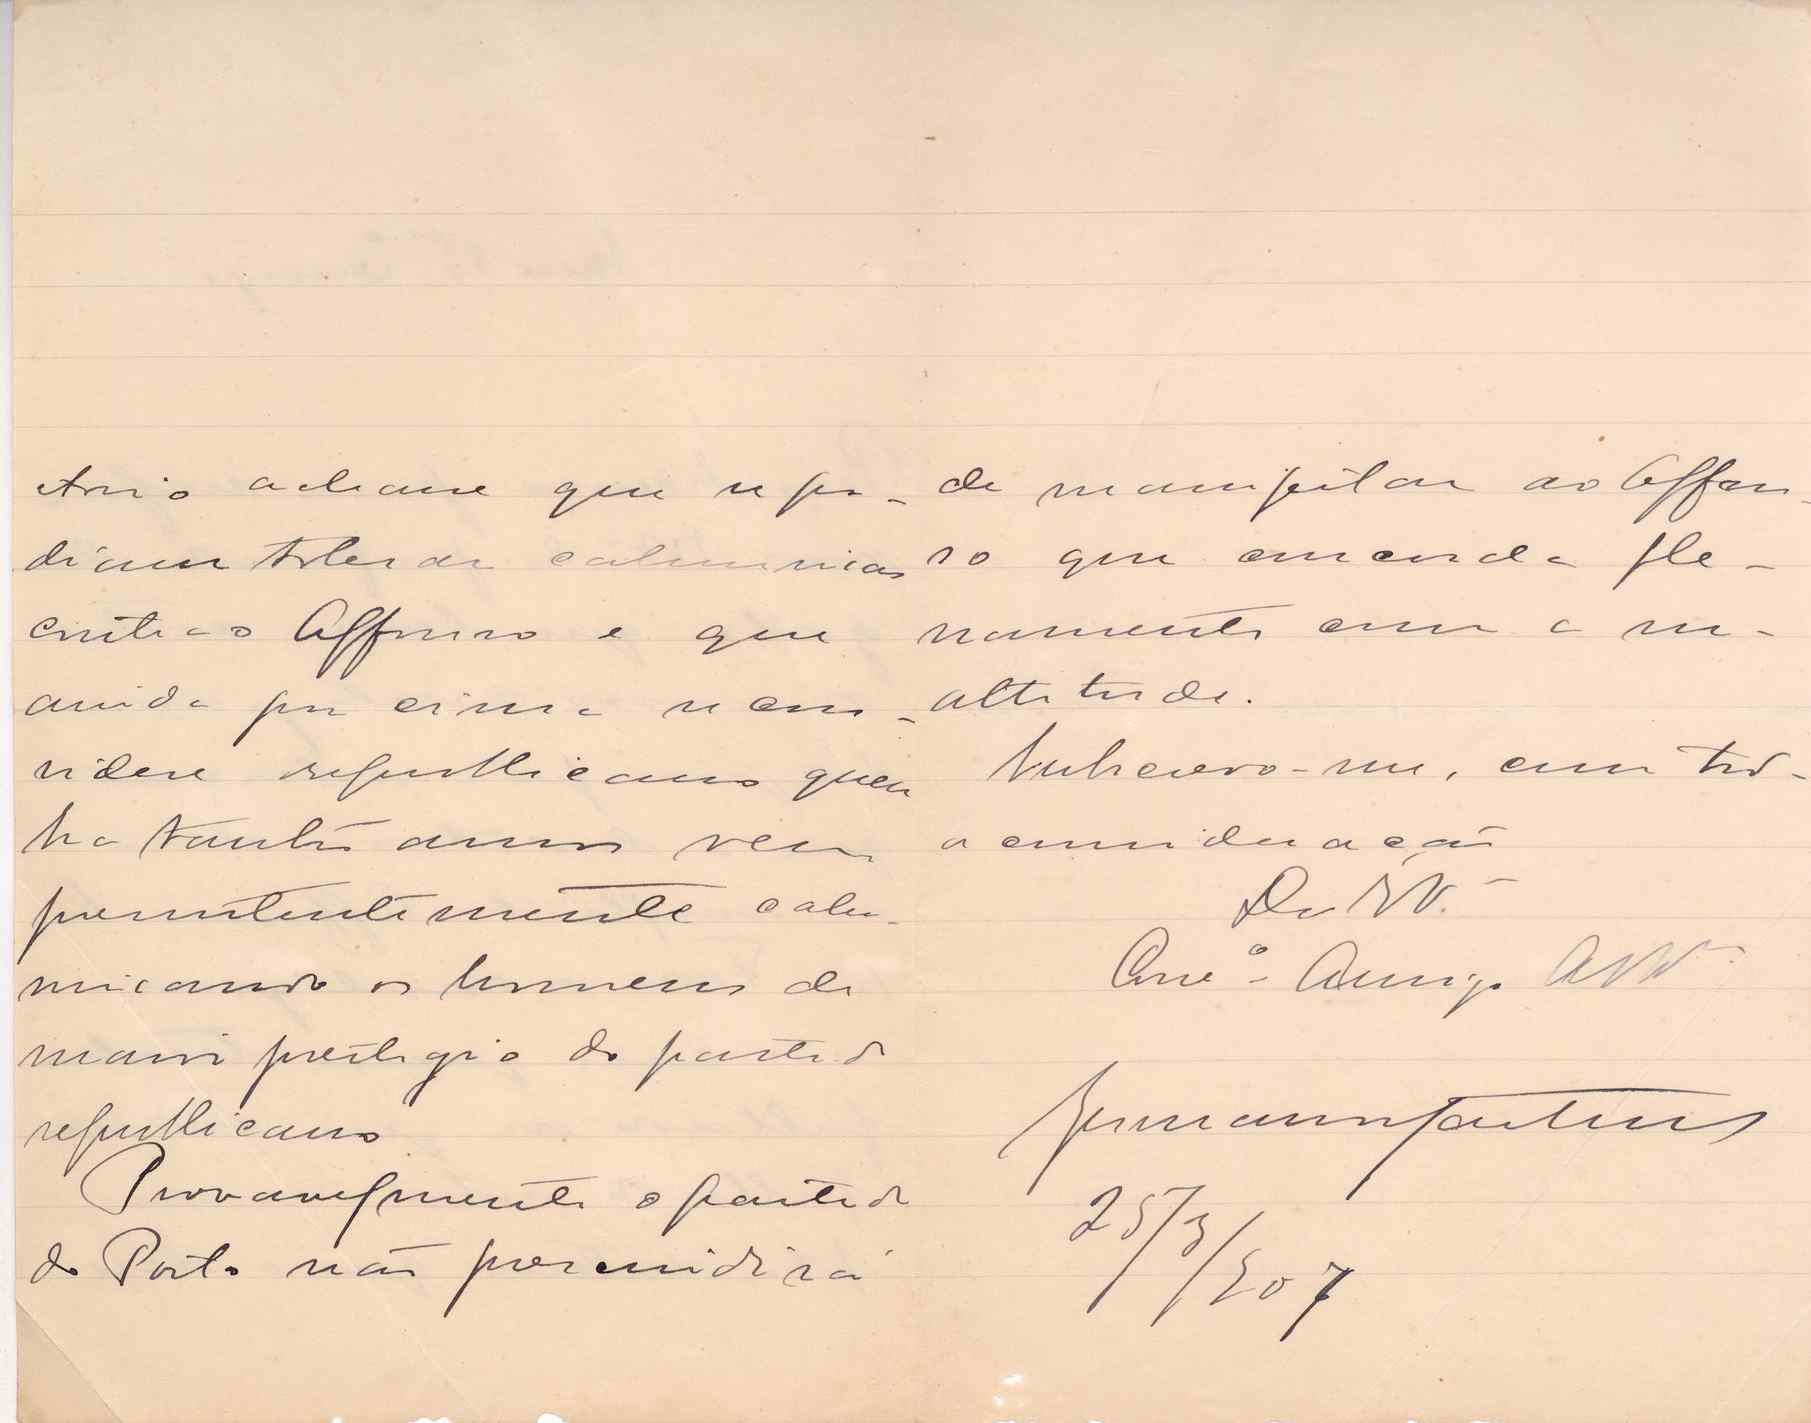 ctorio achasse que se po-
diam tolerar calumnias
contra o Affonso e que
ainda por cima se con-
sidere republicano quem
ha tantos annos vem
persistentemente calu-
miando os homens de
maior prestigio do partido
republicano
Provavelmente o partido
do Porto não prescindirá
de manifestar ao Affon-
so que concorda ple-
namente com a sua
attitude.
Subscrevo-me, com tod-
a consideração
De V.
Corr.º Amigo
Germano Martins
25/3/907